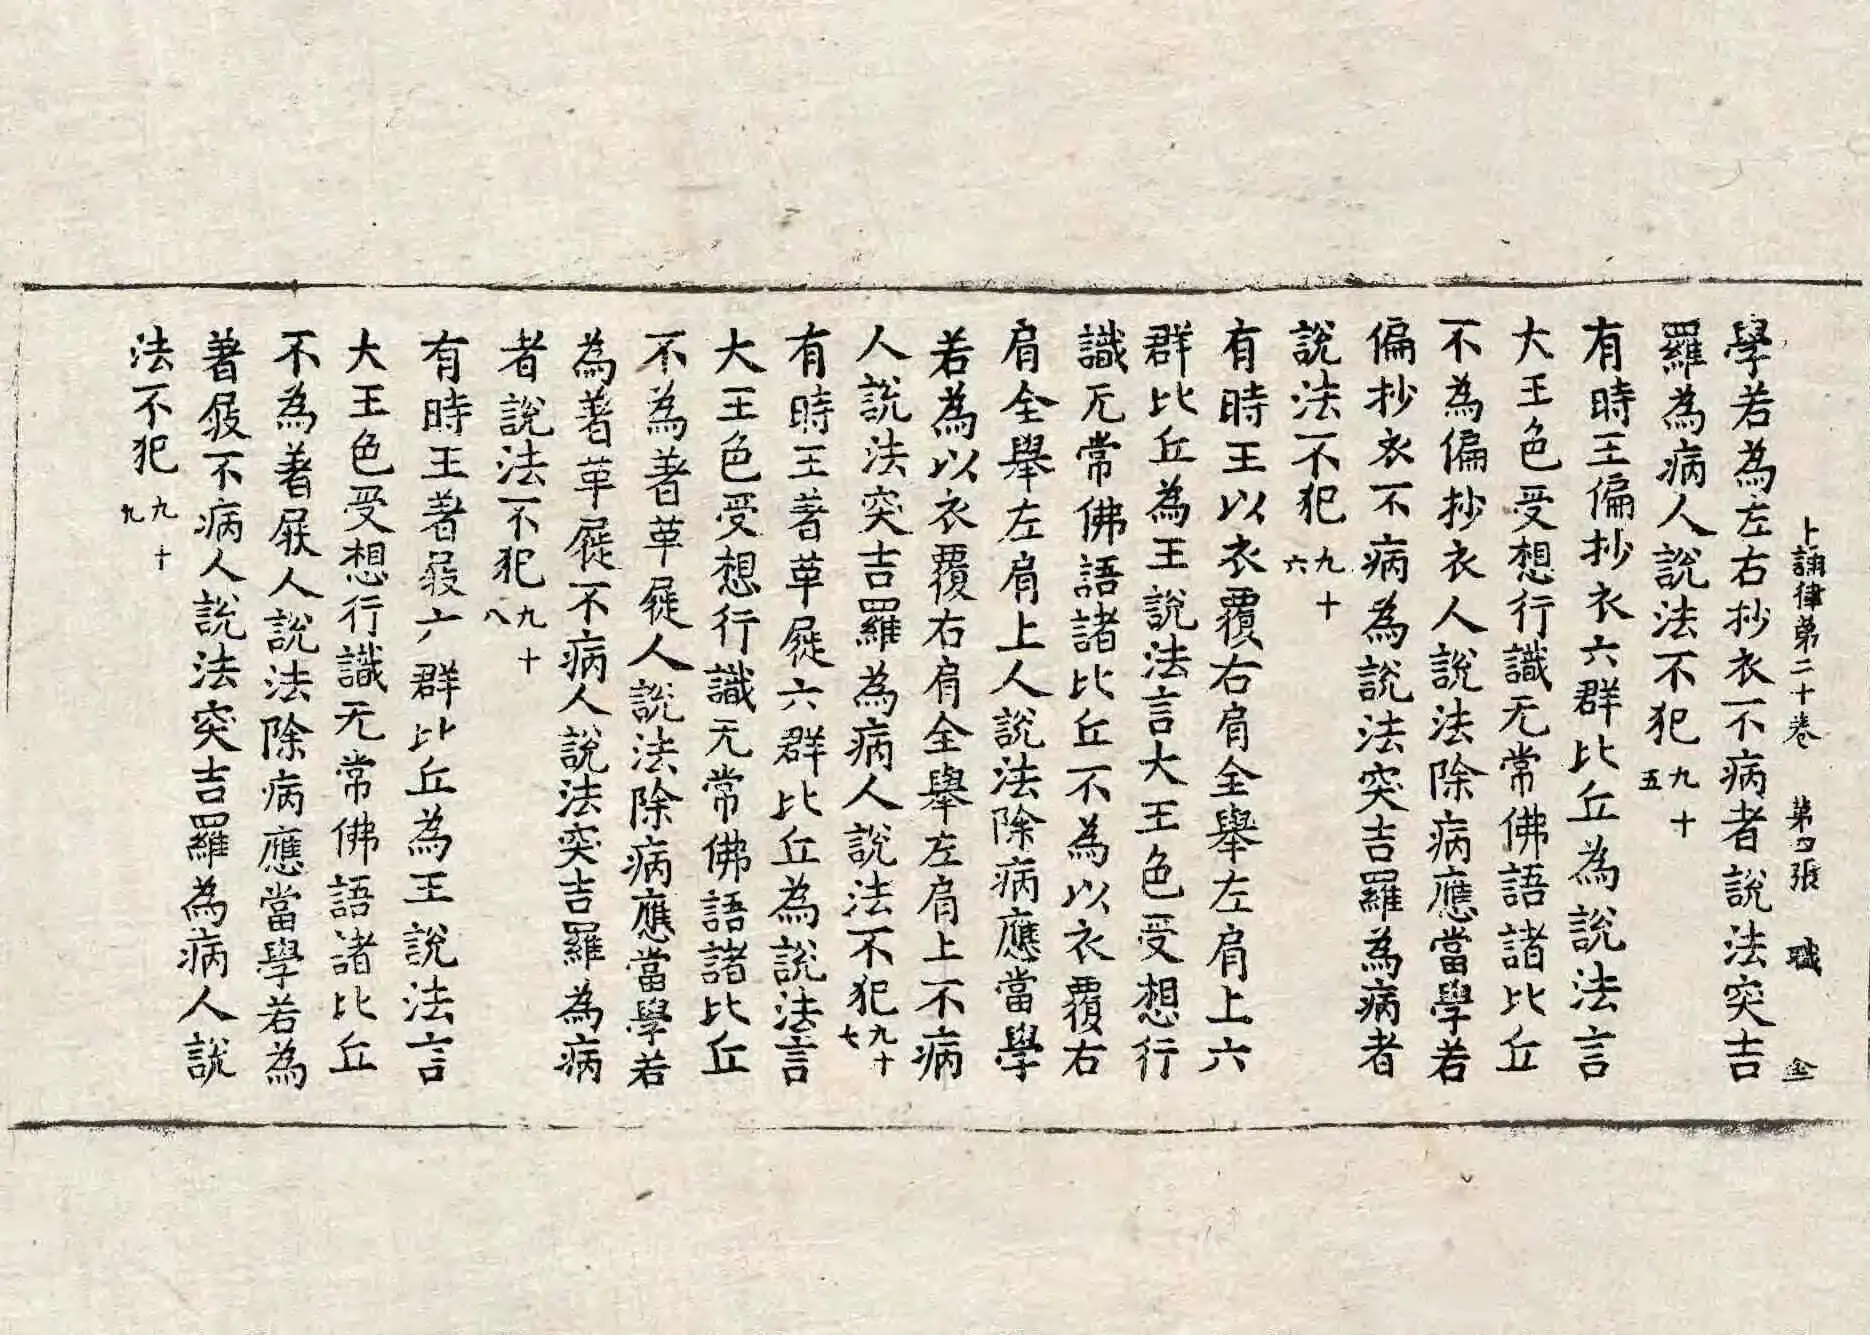 十誦律第二十卷 第四張 職 仝
學若為左右抄衣不病者說法突吉
羅為病人說法不犯九十五
有時王偏抄衣六群比丘為說法言
大王色受想行識无常佛語諸比丘
不為偏抄衣人說法除病應當學若
偏抄衣不病為說法突吉羅為病者
說法不犯九十六
有時王以衣覆右肩全舉左肩上六
群比丘為王說法言大王色受想行
識无常佛語諸比丘不為以衣覆右
肩全舉左肩上人說法除病應當學
若為以衣覆右肩全舉左肩上不病
人說法突吉羅為病人說法不犯九十七
有時王著革屣六群比丘為說法言
大王色受想行識无常佛語諸比丘
不為著革屣人說法除病應當學若
為著革屣不病人說法突吉羅為病
者說法不犯九十八
有時王著屐六群比丘為王說法言
大王色受想行識无常佛語諸比丘
不為著屐人說法除病應當學若為
著屐不病人說法突吉羅為病人說
法不犯九十九